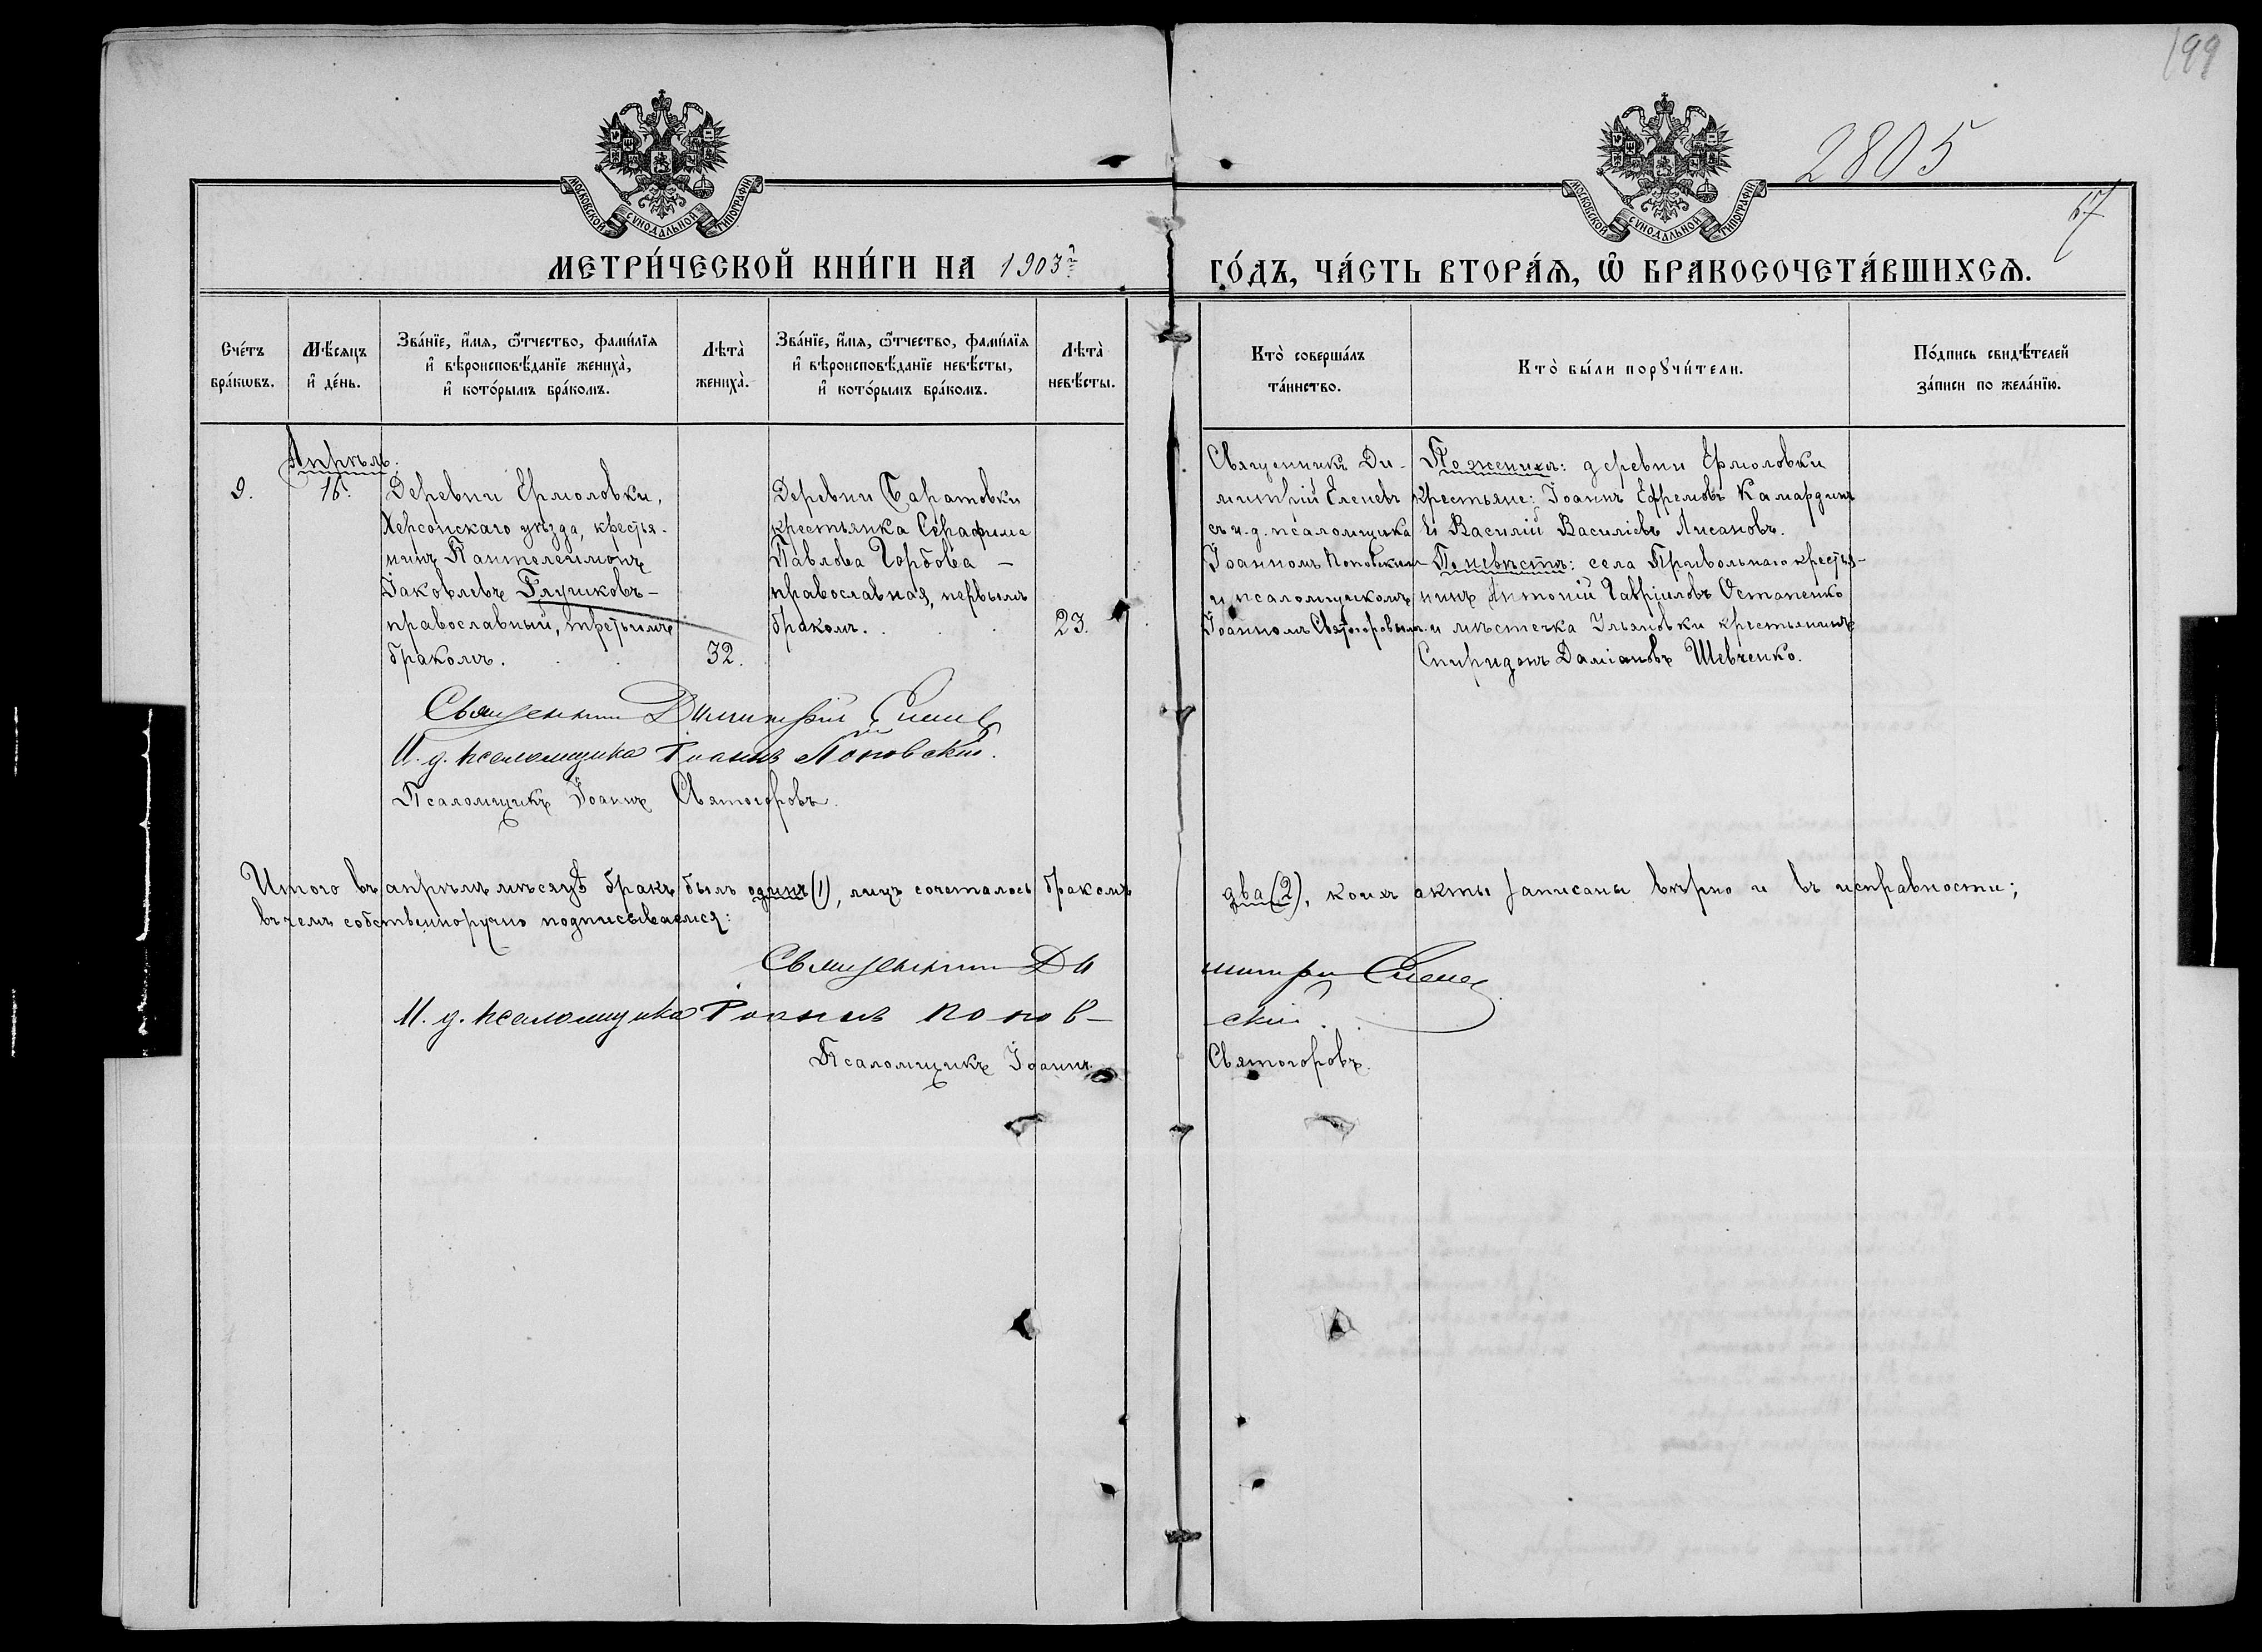 199
2805
67
МОСКОВСКОЙ СѴНОДАЛЬНОЙ ТИПОГРАФІИ
МОСКОВСКОЙ СѴНОДАЛЬНОЙ ТИПОГРАФІИ
МЕТРИ́ЧЕСКОЙ КНИ́ГИ НА 1903й
ГО́ДЪ, ЧА́СТЬ ВТОРА́Ѧ, Ѽ БРАКОСОЧЕТА́ВШИХСѦ.
Сче́тъ
бра́кѡвъ.
Мѣ́сяцъ
и҆ де́нь.
Зва́нїе, и҆́мѧ, ѻ҆́тчество, фами́лїѧ
и҆ вѣроисповѣ́данїе жениха̀,
и҆ кото́рымъ бра́комъ.
Лѣта̀
жениха̀.
Зва́нїе, и҆́мѧ, ѻ҆́тчество, фами́лїѧ
и҆ вѣроисповѣ́данїе невѣ́сты,
и҆ кото́рымъ бра́комъ.
Лѣта̀
невѣ́сты.
Кто̀ соверша́лъ
та́инство.
Кто̀ бы́ли порꙋчи́тели.
По́дпись свидѣ́телей
за́писи по жела́нїю.
Апрѣль.
9.
16.
Деревни Ермоловки,
Херсонскаго уѣзда, крестья-
нинъ Пантелеимонъ
Іаковлевъ Глушковъ –
православный, третьимъ
бракомъ. . .
32.
Деревни Саратовки
крестьянка Серафима
Павлова Горбова –
православная, первымъ
бракомъ. . .
23.
Священникъ Ди-
митрій Еленевъ
съ и. д. псаломщика
Іоанномъ Поповскимъ
и псаломщикомъ
Іоанномъ Святогоровымъ.
По женихѣ: деревни Ермоловки
крестьяне: Іоаннъ Ефремовъ Камардинъ
и Василій Василіевъ Лисановъ.
По невѣстѣ: села Привольнаго крестья-
нинъ Антоній Гавріиловъ Остапенко
и мѣстечка Ульяновки крестьянинъ
Спиридонъ Даміановъ Шевченко.
Священникъ Димитрій Еленевъ
И. д. псаломщика Іоаннъ Поповскій.
Псаломщикъ Іоаннъ Святогоровъ.
Итого въ апрѣлѣ мѣсяцѣ бракъ былъ одинъ (1), лицъ сочеталось бракомъ два (2), коихъ акты записаны вѣрно и въ исправности;
въ чемъ собственноручно подписываемся:
Священникъ Димитрій Еленевъ
И. д. псаломщика Іоаннъ Поповскій.
Псаломщикъ Іоаннъ Святогоровъ.